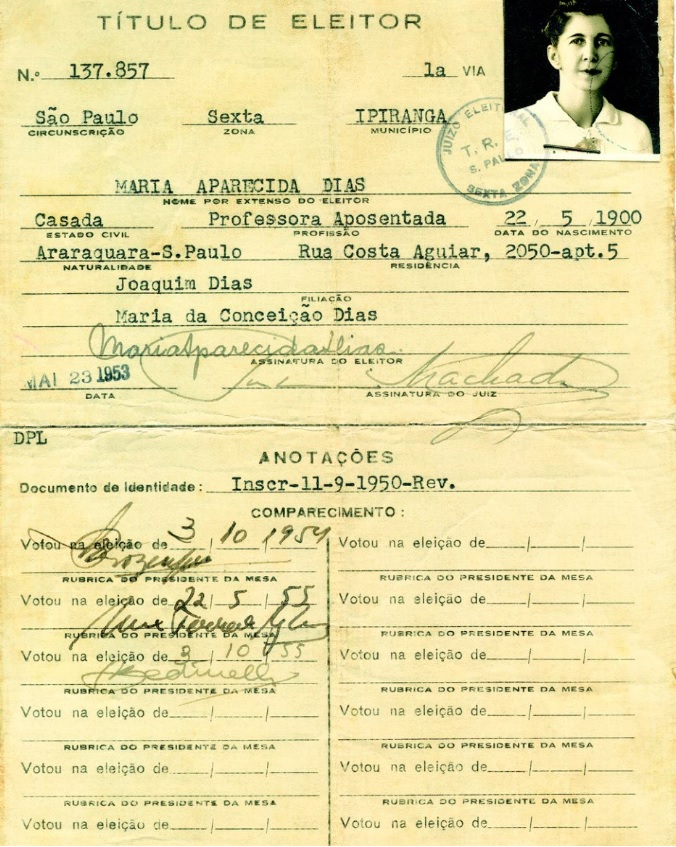 TÍTULO DE ELEITOR
N.º 137.857 1a VIA
São Paulo Sexta IPIRANGA
CIRCUNSCRIÇÃO ZONA MUNICÍPIO
JUIZO ELEITORAL
T. R. E.
S. PAULO
SEXTA ZONA
MARIA APARECIDA DIAS
NOME POR EXTENSO DO ELEITOR
Casada Professora Aposentada 22 / 5 / 1900
ESTADO CIVIL PROFISSÃO DATA DO NASCIMENTO
Araraquara-S.Paulo Rua Costa Aguiar, 2050-apt.5
NATURALIDADE RESIDÊNCIA
Joaquim Dias
FILIAÇÃO
Maria da Conceição Dias
Maria Aparecida Dias
ASSINATURA DO ELEITOR
MAI 23 1953 Machado
DATA ASSINATURA DO JUIZ
DPL
ANOTAÇÕES
Documento de Identidade: Inscr-11-9-1950-Rev.
COMPARECIMENTO:
Votou na eleição de 3 / 10 / 1954 Votou na eleição de / /
RUBRICA DO PRESIDENTE DA MESA RUBRICA DO PRESIDENTE DA MESA
Votou na eleição de 22 / 5 / 55 Votou na eleição de / /
RUBRICA DO PRESIDENTE DA MESA RUBRICA DO PRESIDENTE DA MESA
Votou na eleição de 3 / 10 / 55 Votou na eleição de / /
RUBRICA DO PRESIDENTE DA MESA RUBRICA DO PRESIDENTE DA MESA
Votou na eleição de / / Votou na eleição de / /
RUBRICA DO PRESIDENTE DA MESA RUBRICA DO PRESIDENTE DA MESA
Votou na eleição de / / Votou na eleição de / /
RUBRICA DO PRESIDENTE DA MESA RUBRICA DO PRESIDENTE DA MESA
Votou na eleição de / / Votou na eleição de / /